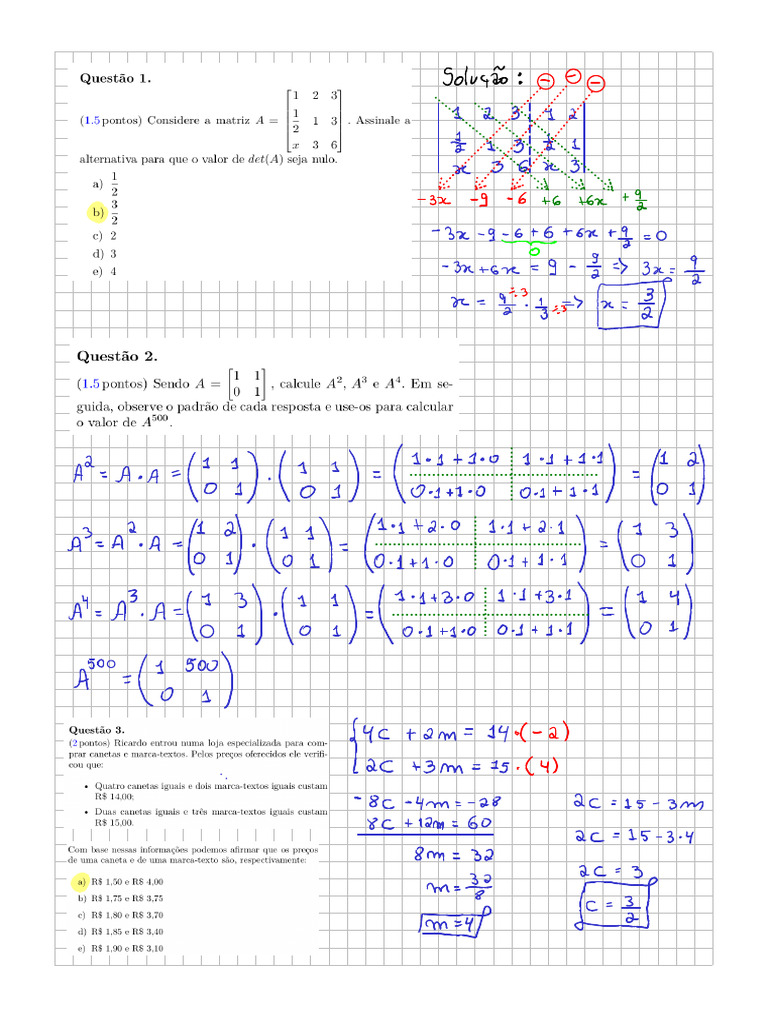 Questão 1.
(1.5 pontos) Considere a matriz A = [1 2 3; 1/2 1 3; x 3 6]. Assinale a
alternativa para que o valor de det(A) seja nulo.
a) 1/2
b) 3/2
c) 2
d) 3
e) 4
Solução: ⊖ ⊖ ⊖
1 2 3 1 2
1/2 1 3 1/2 1
x 3 6 x 3
-3x -9 -6 +6 +6x +9/2
-3x -9 -6 +6 +6x +9/2 = 0
0
-3x+6x = 9 - 9/2 => 3x = 9/2
x = 9/2 ÷3 · 1/3 ÷3 => x = 3/2
Questão 2.
(1.5 pontos) Sendo A = [1 1; 0 1], calcule A², A³ e A⁴. Em se-
guida, observe o padrão de cada resposta e use-os para calcular
o valor de A⁵⁰⁰.
A² = A·A = (1 1; 0 1) · (1 1; 0 1) = (1·1+1·0 1·1+1·1; 0·1+1·0 0·1+1·1) = (1 2; 0 1)
A³ = A²·A = (1 2; 0 1) · (1 1; 0 1) = (1·1+2·0 1·1+2·1; 0·1+1·0 0·1+1·1) = (1 3; 0 1)
A⁴ = A³·A = (1 3; 0 1) · (1 1; 0 1) = (1·1+3·0 1·1+3·1; 0·1+1·0 0·1+1·1) = (1 4; 0 1)
A⁵⁰⁰ = (1 500; 0 1)
Questão 3.
(2 pontos) Ricardo entrou numa loja especializada para com-
prar canetas e marca-textos. Pelos preços oferecidos ele verifi-
cou que:
• Quatro canetas iguais e dois marca-textos iguais custam
R$ 14,00;
• Duas canetas iguais e três marca-textos iguais custam
R$ 15,00.
Com base nessas informações podemos afirmar que os preços
de uma caneta e de uma marca-texto são, respectivamente:
a) R$ 1,50 e R$ 4,00
b) R$ 1,75 e R$ 3,75
c) R$ 1,80 e R$ 3,70
d) R$ 1,85 e R$ 3,40
e) R$ 1,90 e R$ 3,10
4C + 2m = 14 ·(-2)
2C + 3m = 15 ·(4)
-8C -4m = -28
8C +12m = 60
8m = 32
m = 32/8
m = 4
2C = 15 - 3m
2C = 15 - 3·4
2C = 3
C = 3/2